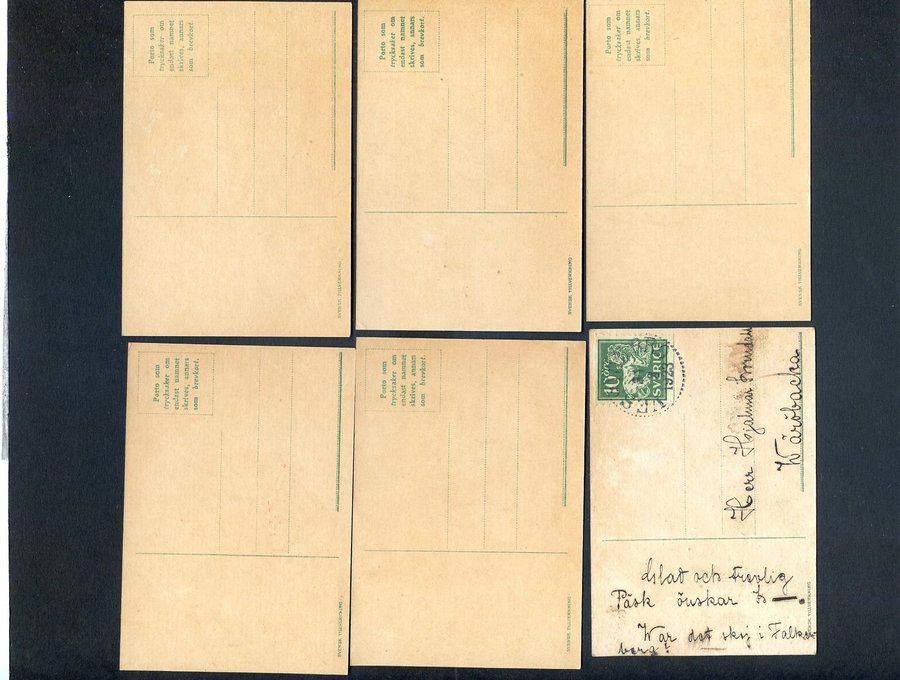 Porto som
trycksaker om
endast namnet
skrives, annars
som brevkort.
SVENSK TILLVERKNING
Porto som
trycksaker om
endast namnet
skrives, annars
som brevkort.
SVENSK TILLVERKNING
Porto som
trycksaker om
endast namnet
skrives, annars
som brevkort.
SVENSK TILLVERKNING
Porto som
trycksaker om
endast namnet
skrives, annars
som brevkort.
SVENSK TILLVERKNING
Porto som
trycksaker om
endast namnet
skrives, annars
som brevkort.
SVENSK TILLVERKNING
10 öre
SVERIGE
1925
Herr Hjalmar
Wäröbacka
Glad och trevlig
Påsk önskar
War det skoj i Falken
berg?
SVENSK TILLVERKNING